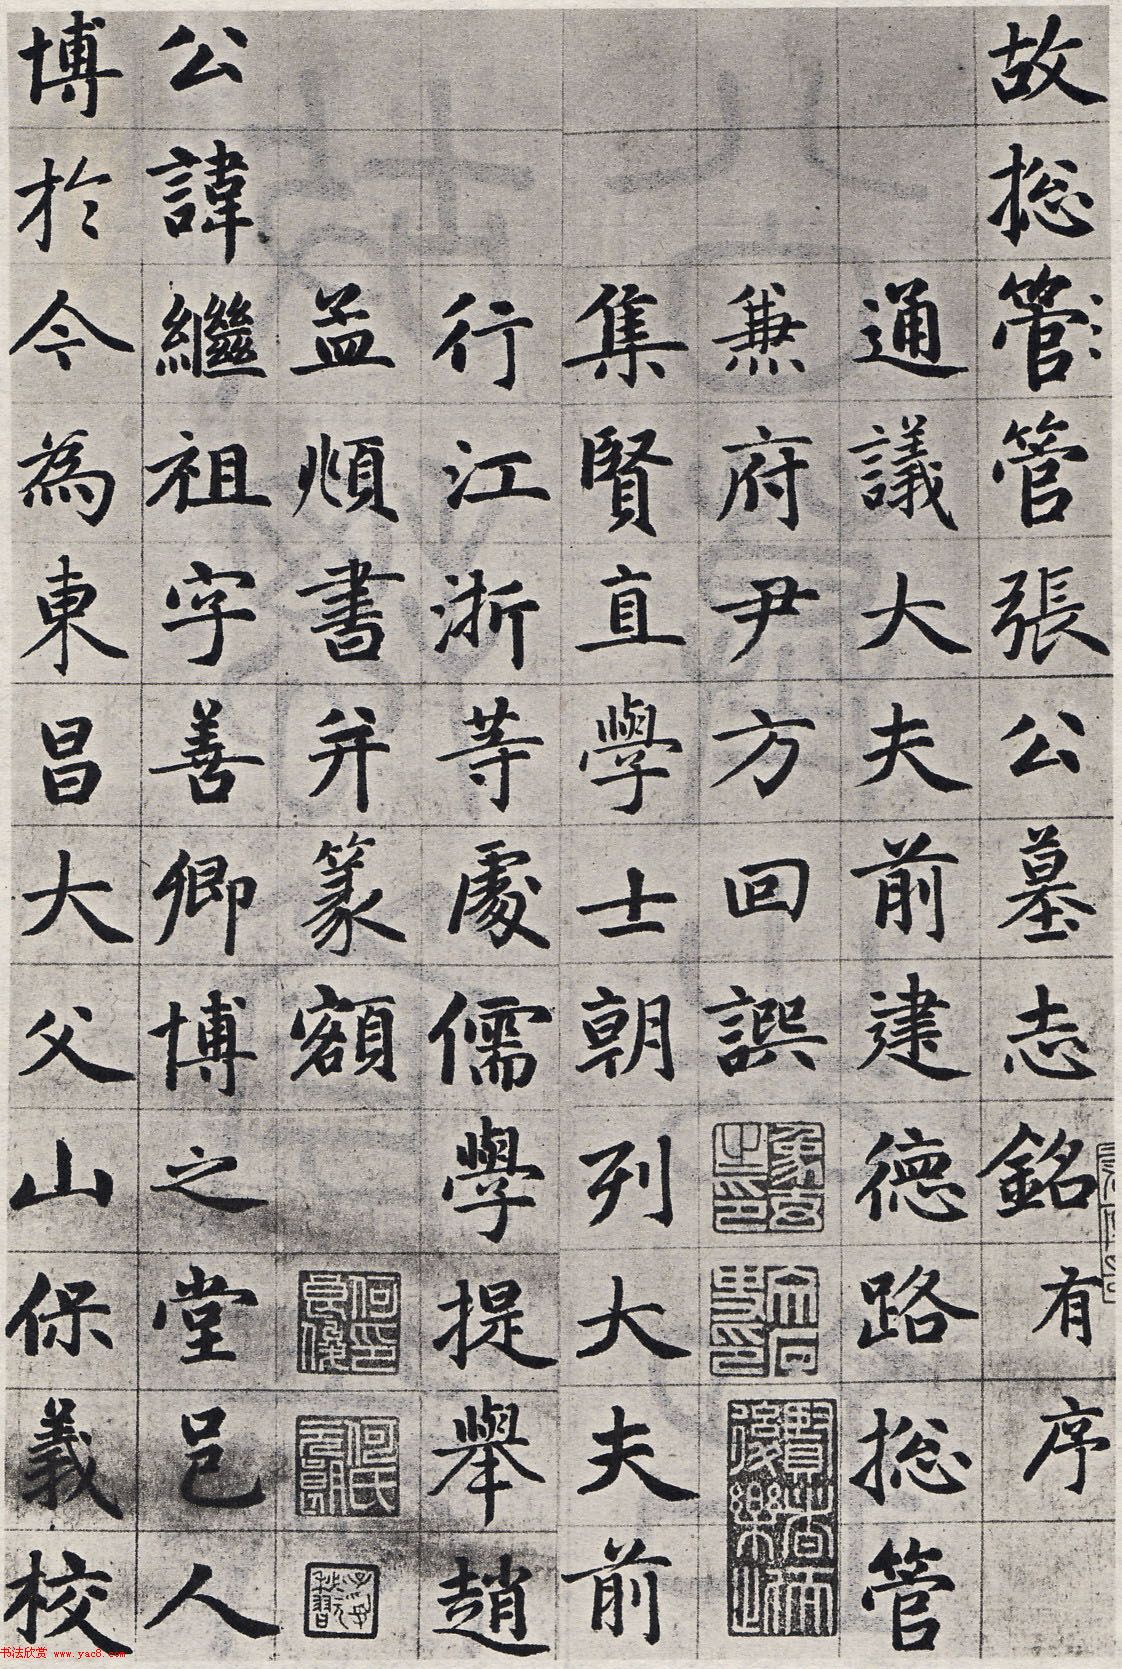 故捴管管張公墓志銘有序
通議大夫前建德路捴管
兼府尹方回譔
集賢直學士朝列大夫前
行江浙等處儒學提舉趙
孟頫書并篆額
何印良俊
何氏元朗
公諱繼祖字善卿博之堂邑人
博於今為東昌大父山保義校
书法欣赏 www.yac8.com